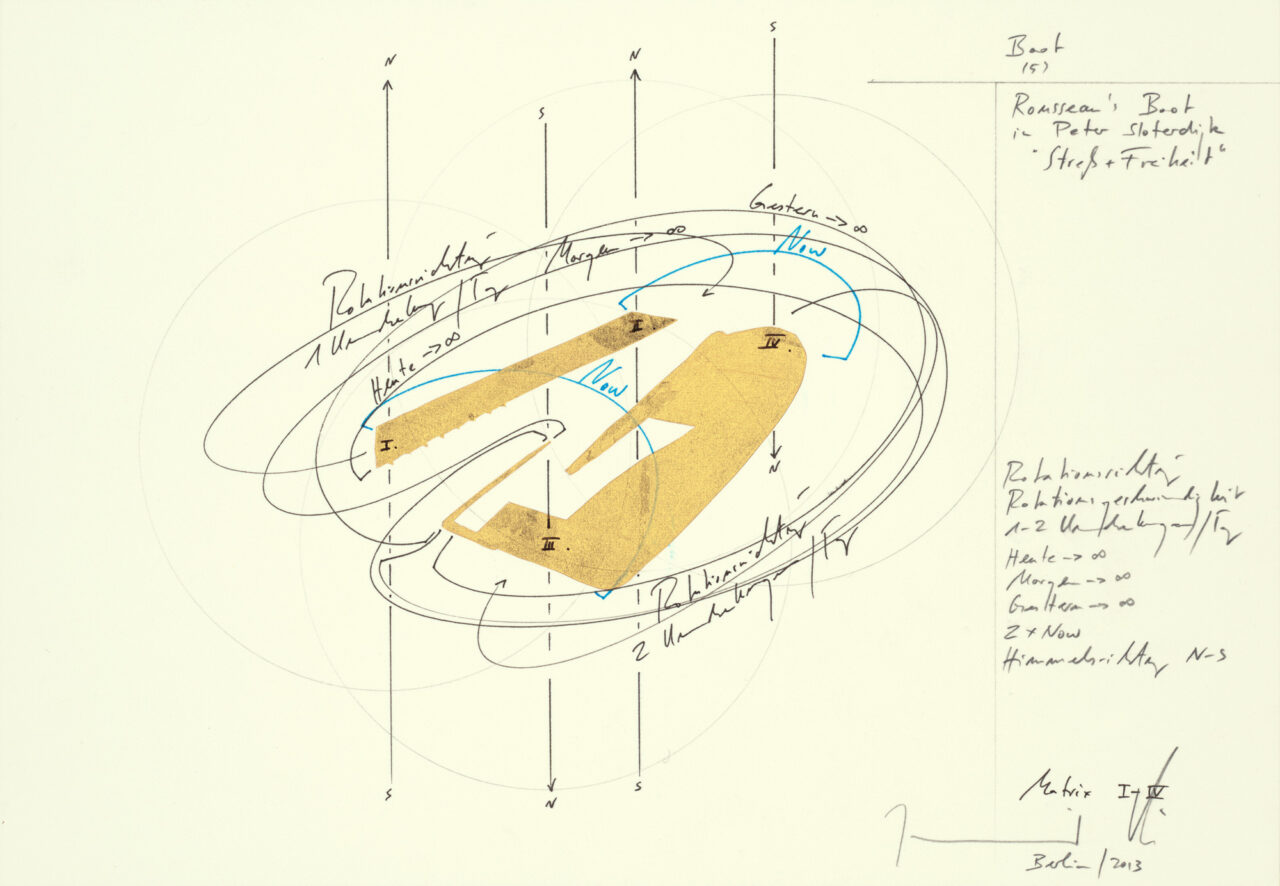 Boot
(5)
Rousseau's Boot
in Peter Sloterdijk
"Streß + Freiheit"
S
N
N
S
Gestern -> ∞
Now
Morgen -> ∞
Rotationsrichtung
1 Umdrehung/Tag
Heute -> ∞
Now
I.
II.
III.
IV.
N
Rotationsrichtung
2 Umdrehungen/Tag
S
N
S
Rotationsrichtung
Rotationsgeschwindigkeit
1-2 Umdrehungen/Tag
Heute -> ∞
Morgen -> ∞
Gestern -> ∞
2 x Now
Himmelsrichtung N-S
Matrix I-IV
Berlin/2013